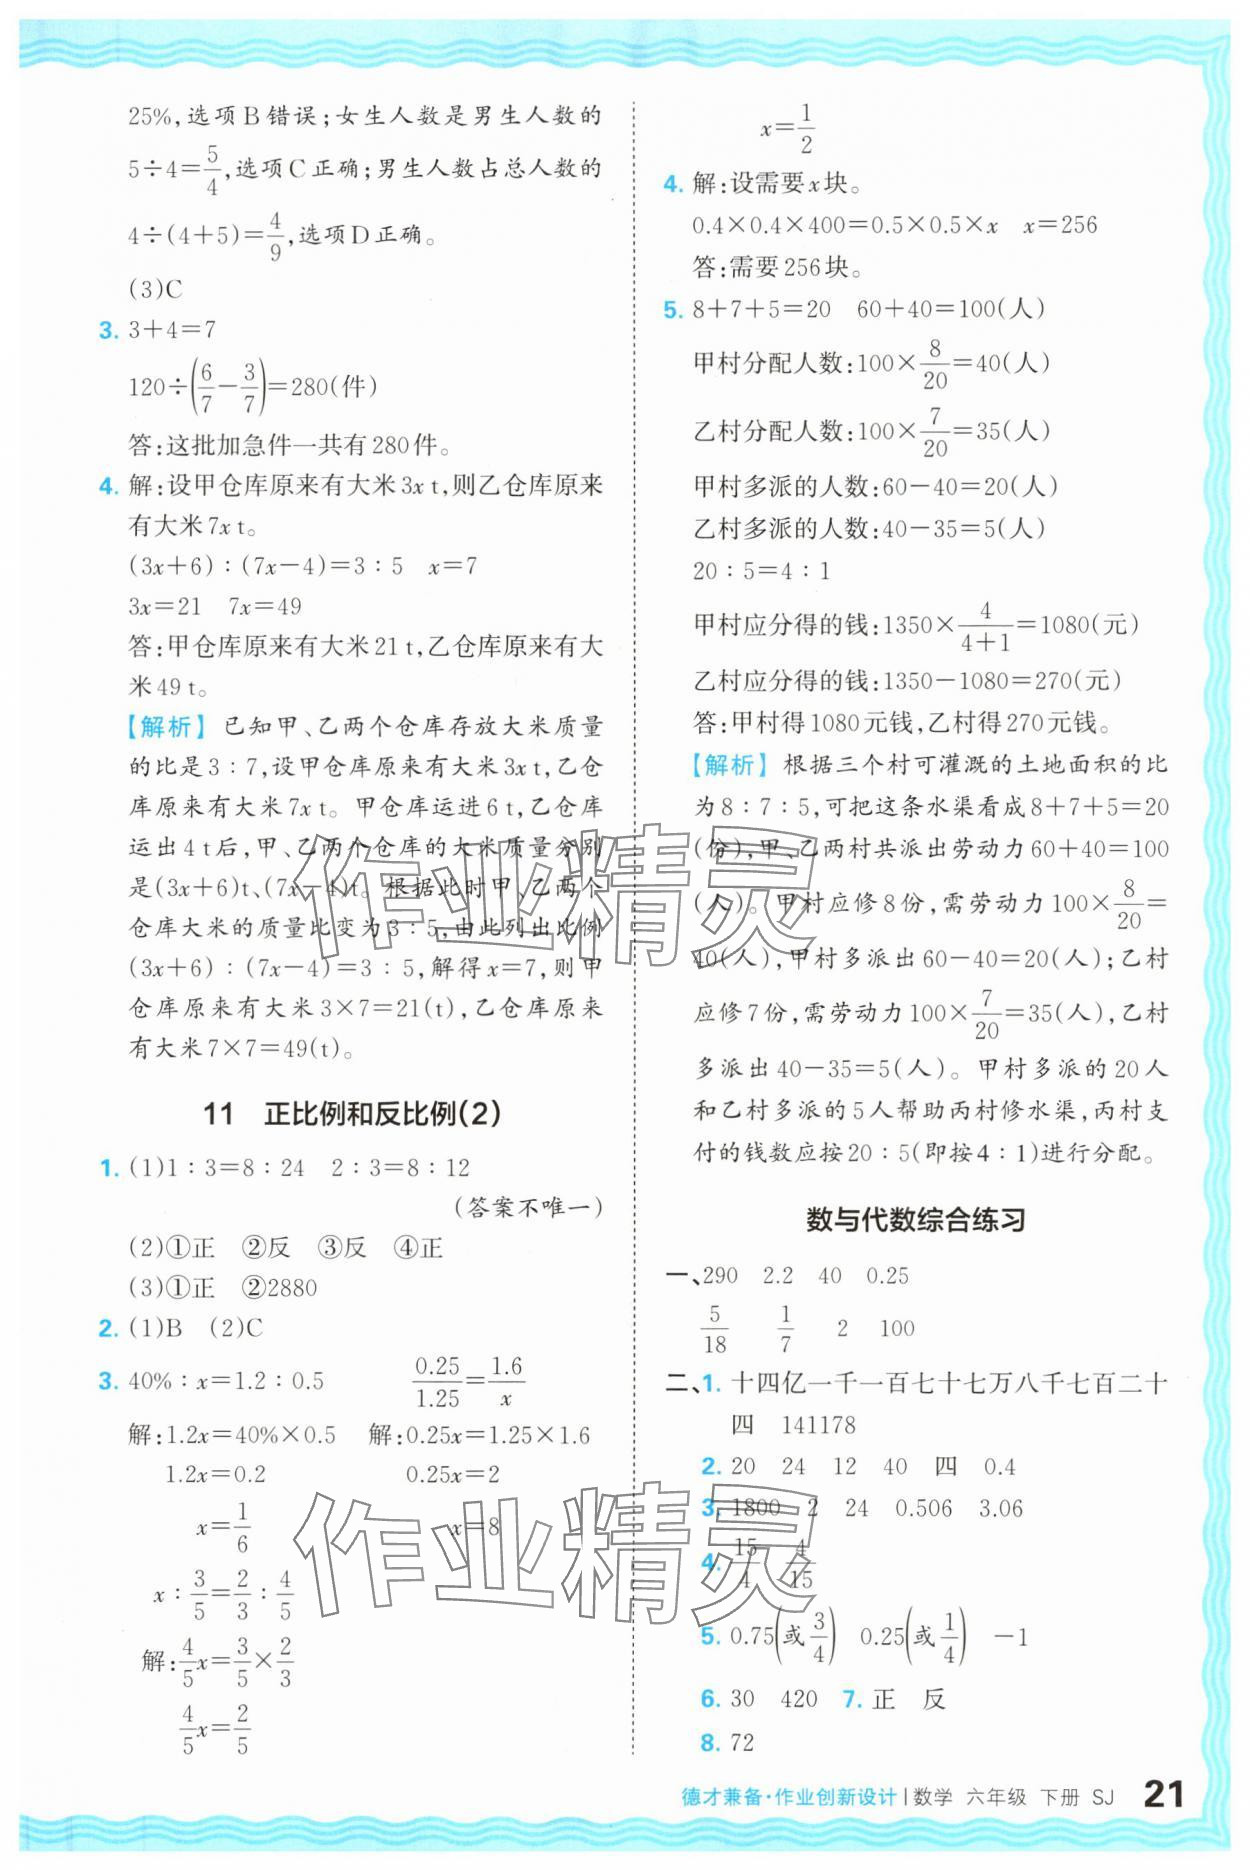 25%,选项B错误;女生人数是男生人数的
5÷4=5/4,选项C正确;男生人数占总人数的
4÷(4+5)=4/9,选项D正确。
(3)C
3. 3+4=7
120÷(6/7-3/7)=280(件)
答:这批加急件一共有280件。
4. 解:设甲仓库原来有大米3x t,则乙仓库原来
有大米7x t。
(3x+6):(7x-4)=3:5 x=7
3x=21 7x=49
答:甲仓库原来有大米21 t,乙仓库原来有大
米49 t。
【解析】已知甲、乙两个仓库存放大米质量
的比是3:7,设甲仓库原来有大米3x t,乙仓
库原来有大米7x t。甲仓库运进6 t,乙仓库
运出4 t后,甲、乙两个仓库的大米质量分别
是(3x+6)t、(7x-4)t。根据此时甲、乙两个
仓库大米的质量比变为3:5,由此列出比例
(3x+6):(7x-4)=3:5,解得x=7,则甲
仓库原来有大米3×7=21(t),乙仓库原来
有大米7×7=49(t)。
11 正比例和反比例(2)
1. (1)1:3=8:24 2:3=8:12
(答案不唯一)
(2)①正 ②反 ③反 ④正
(3)①正 ②2880
2. (1)B (2)C
3. 40%:x=1.2:0.5 0.25/1.25=1.6/x
解:1.2x=40%×0.5 解:0.25x=1.25×1.6
1.2x=0.2 0.25x=2
x=1/6 x=8
x:3/5=2/3:4/5
解:4/5x=3/5×2/3
4/5x=2/5
x=1/2
4. 解:设需要x块。
0.4×0.4×400=0.5×0.5×x x=256
答:需要256块。
5. 8+7+5=20 60+40=100(人)
甲村分配人数:100×8/20=40(人)
乙村分配人数:100×7/20=35(人)
甲村多派的人数:60-40=20(人)
乙村多派的人数:40-35=5(人)
20:5=4:1
甲村应分得的钱:1350×4/(4+1)=1080(元)
乙村应分得的钱:1350-1080=270(元)
答:甲村得1080元钱,乙村得270元钱。
【解析】根据三个村可灌溉的土地面积的比
为8:7:5,可把这条水渠看成8+7+5=20
(份),甲、乙两村共派出劳动力60+40=100
(人)。甲村应修8份,需劳动力100×8/20=
40(人),甲村多派出60-40=20(人);乙村
应修7份,需劳动力100×7/20=35(人),乙村
多派出40-35=5(人)。甲村多派的20人
和乙村多派的5人帮助丙村修水渠,丙村支
付的钱数应按20:5(即按4:1)进行分配。
数与代数综合练习
一、290 2.2 40 0.25
5/18 1/7 2 100
二、1. 十四亿一千一百七十七万八千七百二十
四 141178
2. 20 24 12 40 四 0.4
3. 1800 2 24 0.506 3.06
4. 15/4 4/15
5. 0.75(或3/4) 0.25(或1/4) -1
6. 30 420 7. 正 反
8. 72
德才兼备·作业创新设计 | 数学 六年级 下册 SJ 21
作业精灵
作业精灵